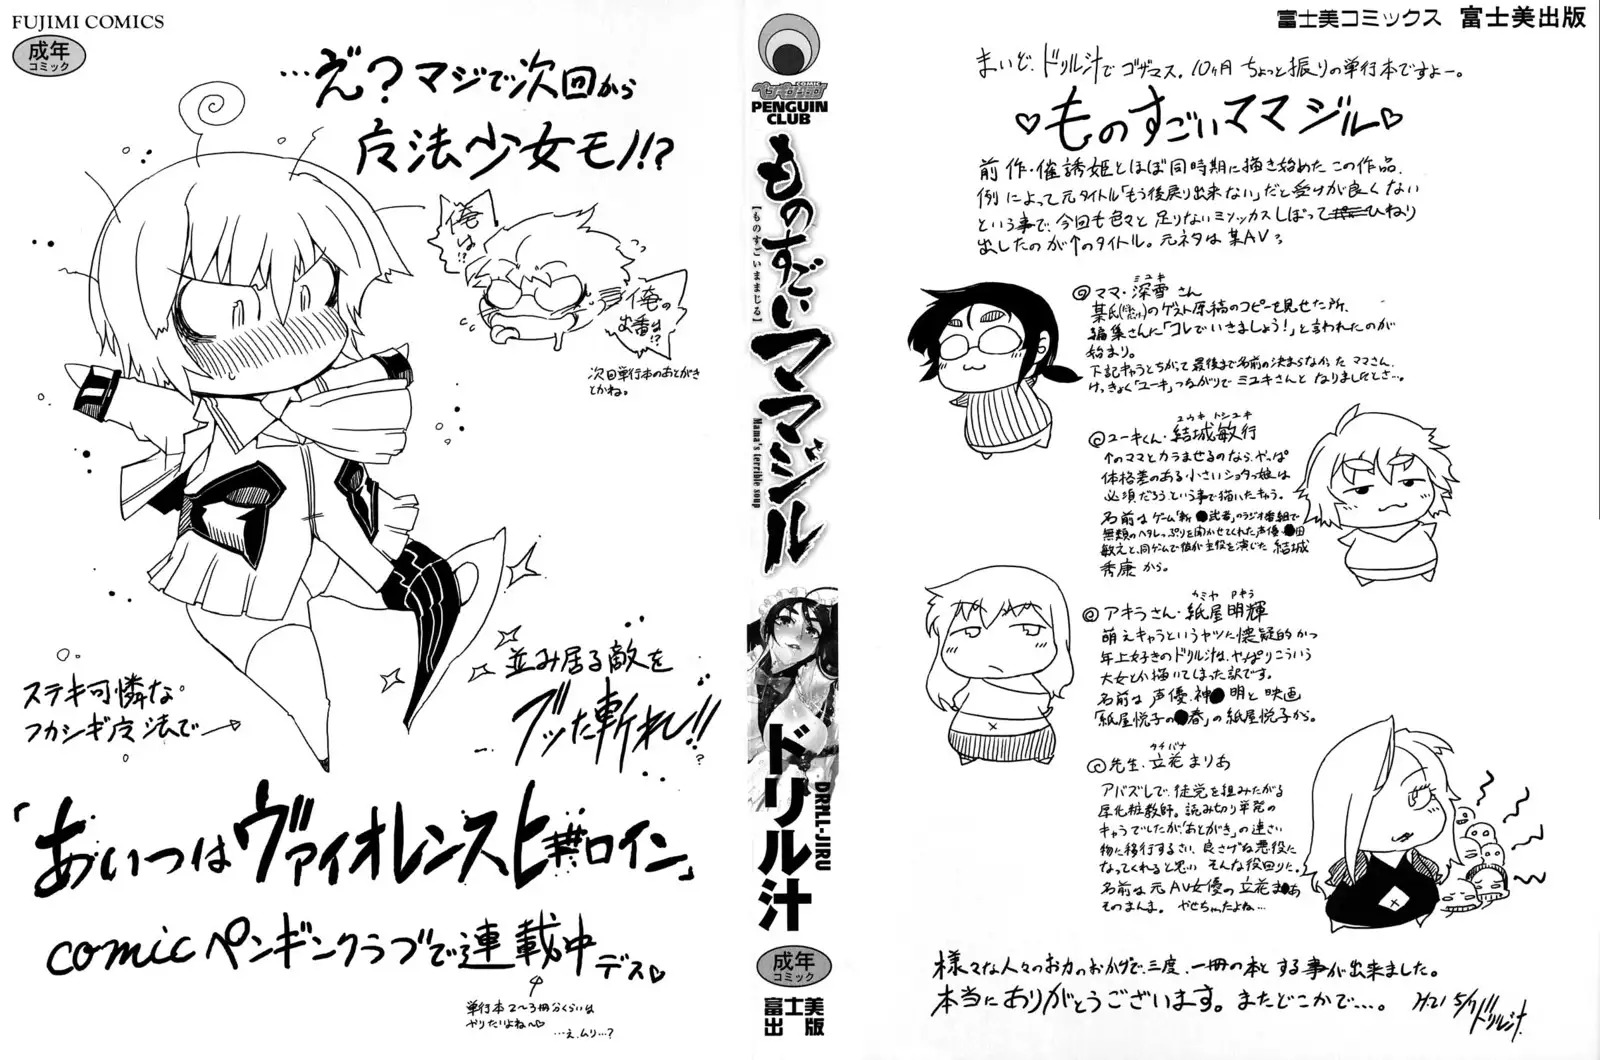 FUJIMI COMICS
成年
コミック
…え?マジで次回から
魔法少女モノ!?
俺は!?
俺の
出番は!?
次回単行本のあとがき
とかね。
ステキ可憐な
フカシギ魔法で
並み居る敵を
ブッた斬れし!!
?
「あいつはヴァイオレンスヒロイン」
comicペンギンクラブで連載中デス♡
単行本2〜3冊分くらいは
やりたいよね〜♡
…え、ムリ…?
COMIC
ペンギンクラブ
PENGUIN
CLUB
ものすごいママジル
【ものすごいままじる】
Mama's terrible soup
ドリル汁
DRILL-JIRU
成年
コミック
富士美
出版
富士美コミックス 富士美出版
まいど、ドリル汁でゴザマス。10ヶ月ちょっと振りの単行本ですよー。
♡ものすごいママジル♡
前作・催誘姫とほぼ同時期に描き始めたこの作品、
例によって元タイトル「もう後戻り出来ない」だと受けが良くない
という事で、今回も色々と足りないミソッカスしぼってひねり
出したのが↑のタイトル。元ネタは某AV。
ミユキ
◎ママ・深雪さん
某氏のゲスト原稿のコピーを見せた所、
編集さんに「コレでいきましょう!」と言われたのが
始まり。
下記キャラとちがって最後まで名前の決まらなかったママさん。
けっきょく「ユーキ」つながりでミユキさんとなりましたとさ…。
ユウキ トシユキ
◎ユーキくん・結城敏行
↑のママとカラませるのなら、やっぱ
体格差のある小さいショタっ娘は
必須だろうという事で描いたキャラ。
名前はゲーム「新●武者」のラジオ番組で
無類のヘタレっぷりを聞かせてくれた声優・●田
敏〇と、同ゲームで彼が主役を演じた結城
秀康から。
カミヤ アキラ
◎アキラさん・紙屋明輝
萌えキャラというヤツに懐疑的かつ
年上好きのドリル汁は、やっぱりこういう
大女とか描いてしまった訳です。
名前は声優・神●明と映画
「紙屋悦子の●春」の紙屋悦子から。
タチバナ
◎先生・立花まりあ
アバズレで、徒党を組みたがる
厚化粧教師。読み切り単発の
キャラでしたが「あとがき」の連さい
物に移行するさい、良さげな悪役に
なってくれると思いそんな役回りに。
名前は元AV女優の立花ま●あ
そのまんま。やせちゃったよね…
様々な人々のお力のおかげで、三度、一冊の本とする事が出来ました。
本当にありがとうございます。またどこかで…。 H21 5/11 ドリル汁